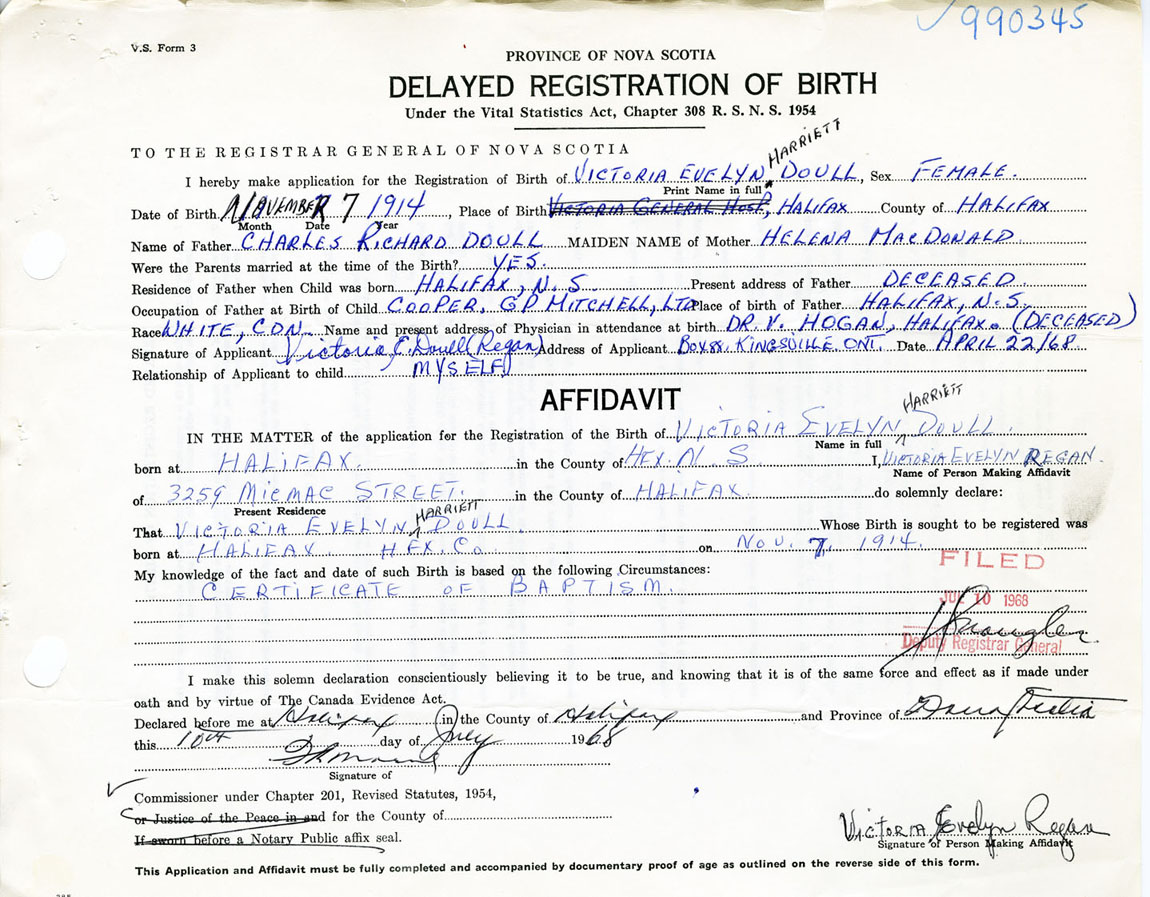 ✓990345
V.S. Form 3
PROVINCE OF NOVA SCOTIA
DELAYED REGISTRATION OF BIRTH
Under the Vital Statistics Act, Chapter 308 R. S. N. S. 1954
TO THE REGISTRAR GENERAL OF NOVA SCOTIA
HARRIETT
I hereby make application for the Registration of Birth of VICTORIA EVELYN DOULL, Sex FEMALE.
Print Name in full
Date of Birth NOVEMBER 7 1914, Place of Birth VICTORIA GENERAL HOSP, HALIFAX County of HALIFAX
Month Date Year
Name of Father CHARLES RICHARD DOULL MAIDEN NAME of Mother HELENA MACDONALD
Were the Parents married at the time of the Birth? YES.
Residence of Father when Child was born HALIFAX, N.S. Present address of Father DECEASED.
Occupation of Father at Birth of Child COOPER, GP MITCHELL, LTD Place of birth of Father HALIFAX, N.S.
Race WHITE, CDN. Name and present address of Physician in attendance at birth DR. V. HOGAN, HALIFAX. (DECEASED)
Signature of Applicant Victoria E. Doull (Regan) Address of Applicant KINGSVILLE ONT. Date APRIL 22/68
Relationship of Applicant to child MYSELF
AFFIDAVIT
HARRIETT
IN THE MATTER of the application for the Registration of the Birth of VICTORIA EVELYN DOULL.
Name in full
born at HALIFAX. in the County of HFX. N S. I, VICTORIA EVELYN REGAN.
Name of Person Making Affidavit
of 3259 MICMAC STREET. in the County of HALIFAX. do solemnly declare:
Present Residence
HARRIETT
That VICTORIA EVELYN DOULL Whose Birth is sought to be registered was
born at HALIFAX HFX. Co. on NOV. 7, 1914.
My knowledge of the fact and date of such Birth is based on the following Circumstances:
CERTIFICATE OF BAPTISM.
FILED
JUL 10 1968
Deputy Registrar General
I make this solemn declaration conscientiously believing it to be true, and knowing that it is of the same force and effect as if made under
oath and by virtue of The Canada Evidence Act.
Declared before me at Halifax (in) the County of Halifax and Province of Nova Scotia
this 10th day of July 1968
Signature of
Commissioner under Chapter 201, Revised Statutes, 1954,
or Justice of the Peace in and for the County of
If sworn before a Notary Public affix seal.
Victoria Evelyn Regan
Signature of Person Making Affidavit
This Application and Affidavit must be fully completed and accompanied by documentary proof of age as outlined on the reverse side of this form.